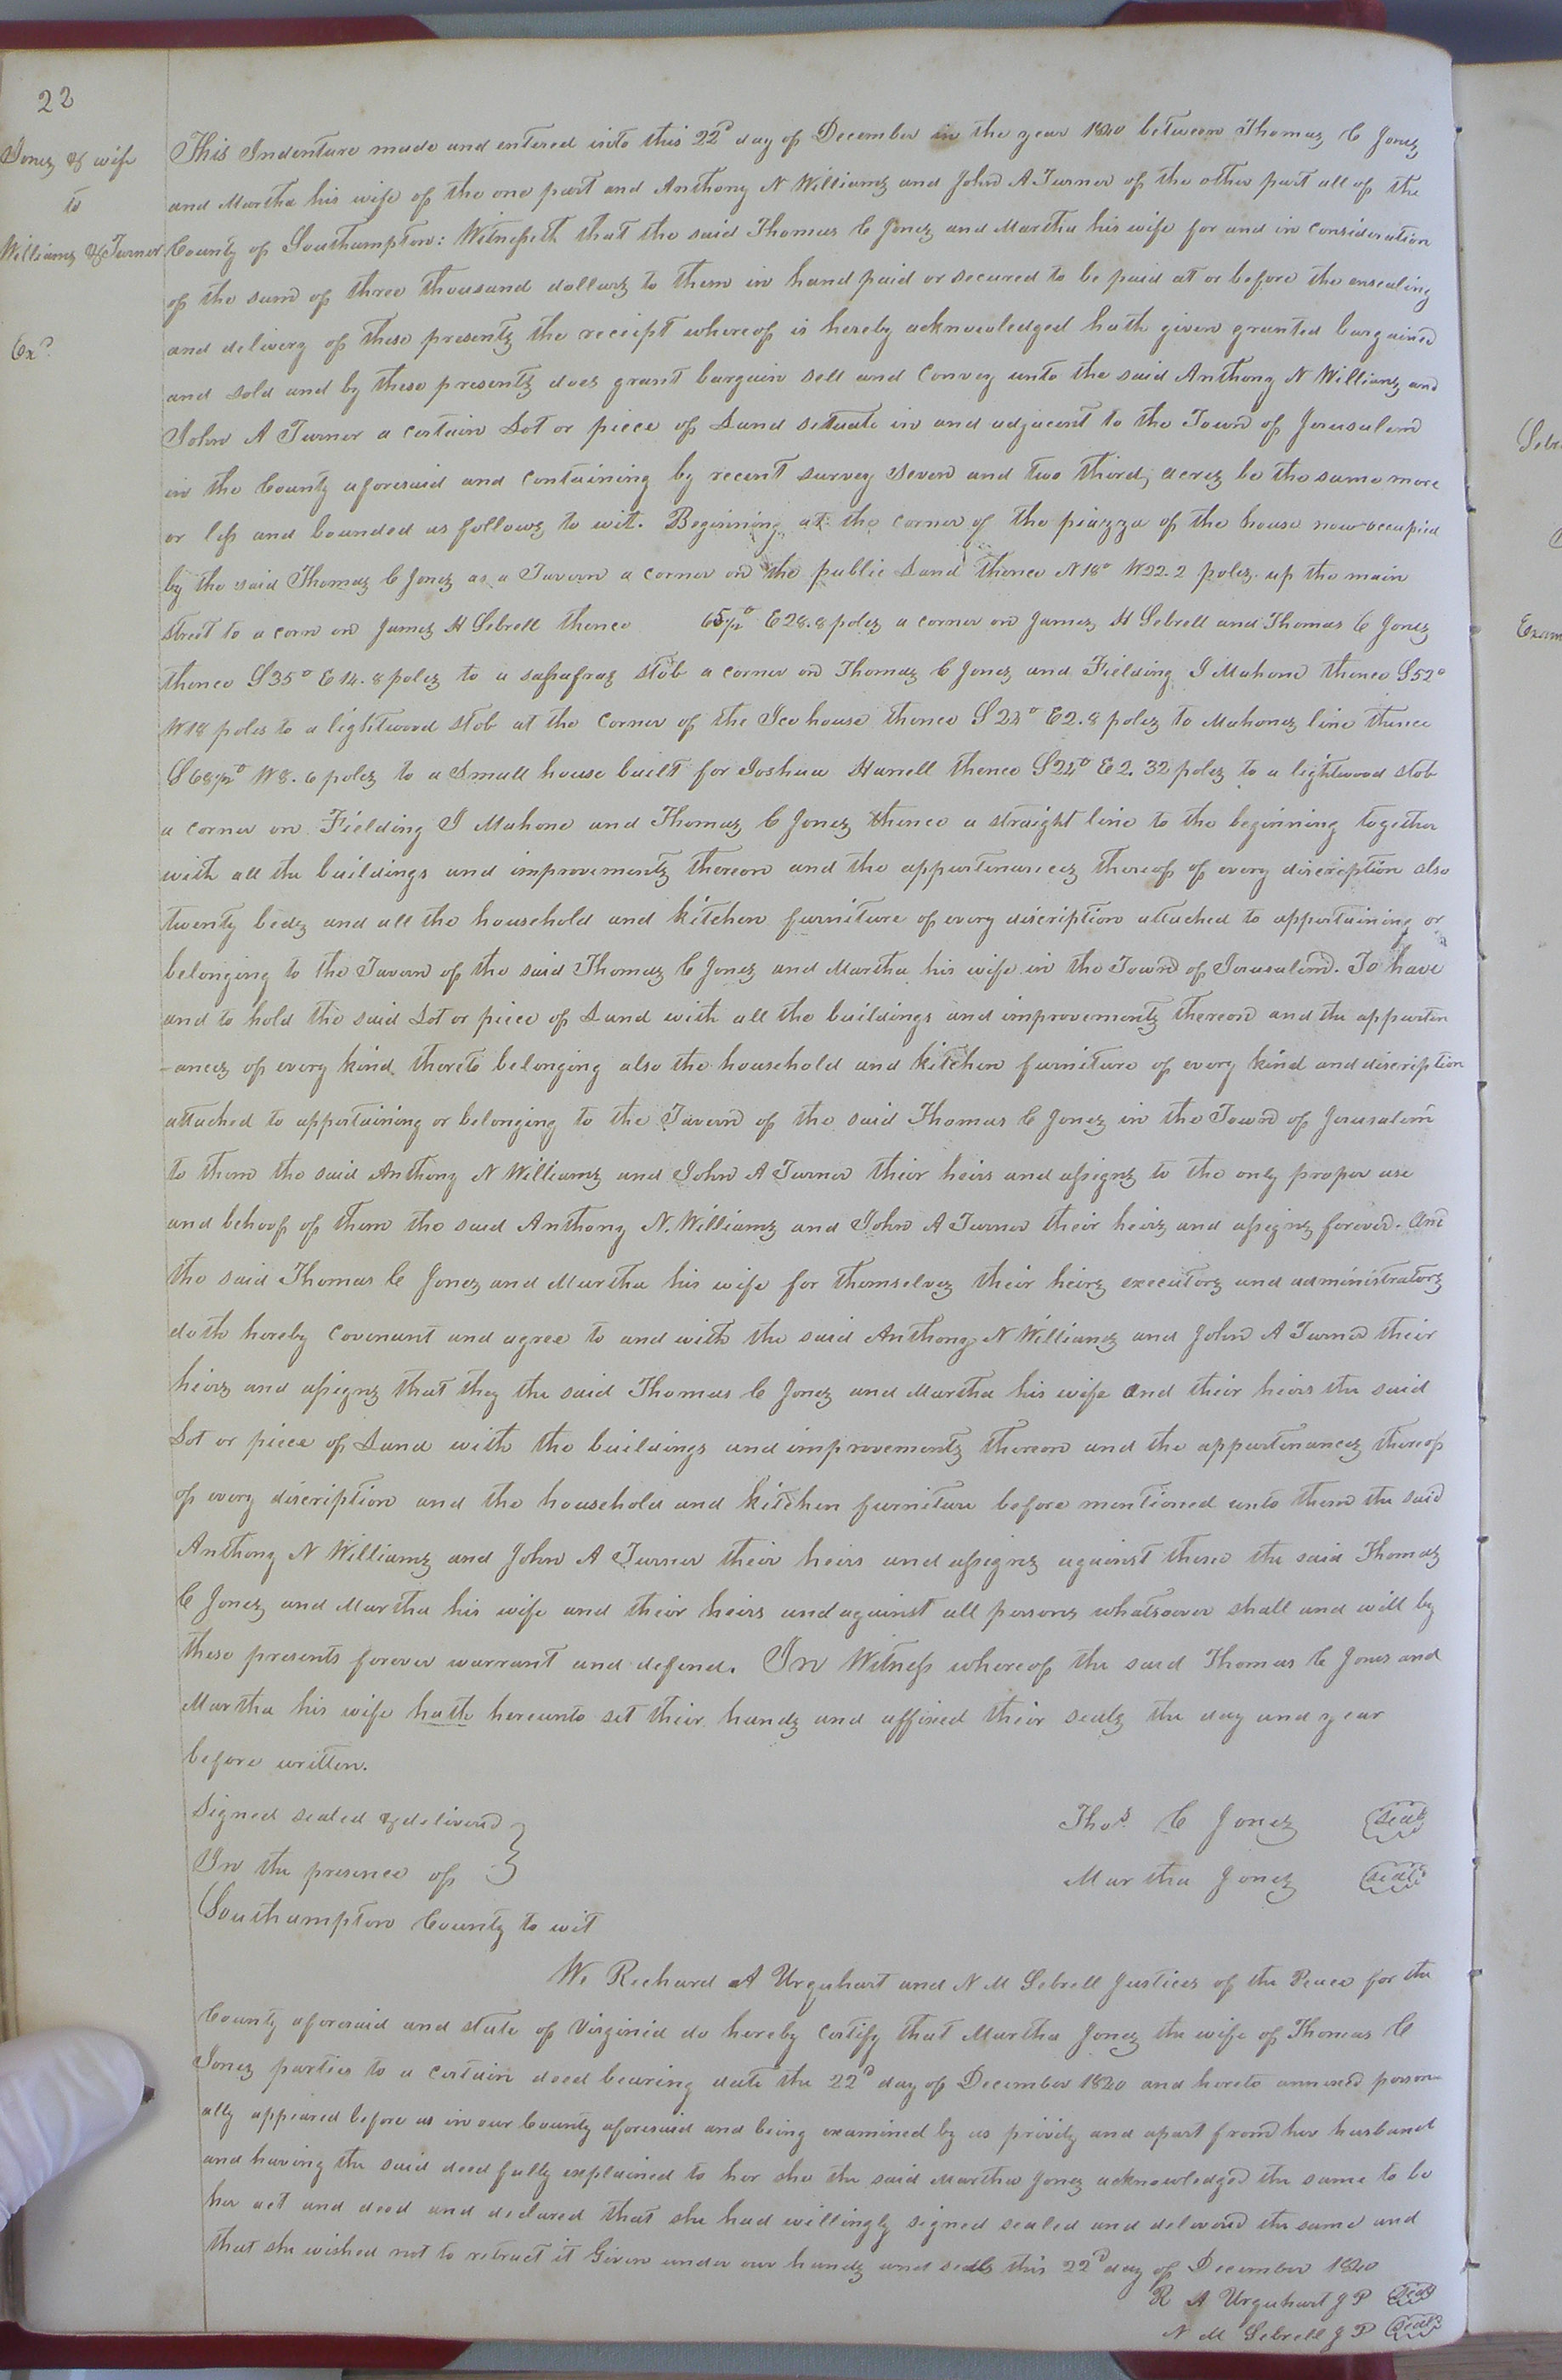 22
Jones & wife
to
Williams & Turner
Exd.
This Indenture made and entered into this 22d day of December in the year 1840 between Thomas C Jones
and Martha his wife of the one part and Anthony N Williams and John A Turner of the other part all of the
County of Southampton: Witnesseth that the said Thomas C Jones and Martha his wife for and in consideration
of the sum of three thousand dollars to them in hand paid or secured to be paid at or before the ensealing
and delivery of these presents the receipt whereof is hereby acknowledged hath given granted bargained
and sold and by these presents does grant bargain sell and Convey unto the said Anthony N Williams and
John A Turner a certain Lot or piece of Land situate in and adjacent to the Town of Jerusalem
in the County aforesaid and containing by recent survey seven and two thirds acres be the same more
or less and bounded as follows to wit. Beginning at the corner of the piazza of the house now occupied
by the said Thomas C Jones as a Tavern a corner on the public Land thence N18° W22.2 poles up the main
street to a corn on James H Sebrell thence 65½° E28.8 poles a corner on James H Sebrell and Thomas C Jones
thence S35° E14.8 poles to a sassafras stob a corner on Thomas C Jones and Fielding J Mahone thence S52°
W18 poles to a lightwood stob at the corner of the Ice house thence S24° E2.8 poles to Mahones line thence
S68½° W8.6 poles to a Small house built for Joshua Harrell thence S24° E2.32 poles to a lightwood stob
a corner on Fielding J Mahone and Thomas C Jones thence a straight line to the beginning together
with all the buildings and improvements thereon and the appurtenances thereof of every discription also
twenty beds and all the household and kitchen furniture of every discription attached to appertaining or
belonging to the Tavern of the said Thomas C Jones and Martha his wife in the Town of Jerusalem. To have
and to hold the said Lot or piece of Land with all the buildings and improvements thereon and the appurten
-ances of every kind thereto belonging also the household and kitchen furniture of every kind and discription
attached to appertaining or belonging to the Tavern of the said Thomas C Jones in the Town of Jerusalem
to them the said Anthony N Williams and John A Turner their heirs and assigns to the only proper use
and behoof of them the said Anthony N. Williams and John A Turner their heirs and assigns forever. And
the said Thomas C Jones and Martha his wife for themselves their heirs executors and administrators
doth hereby Covenant and agree to and with the said Anthony N Williams and John A Turner their
heirs and assigns that they the said Thomas C Jones and Martha his wife and their heirs the said
Lot or piece of Land with the buildings and improvements thereon and the appurtenances thereof
of every discription and the household and kitchen furniture before mentioned unto them the said
Anthony N Williams and John A Turner their heirs and assigns against them the said Thomas
C Jones and Martha his wife and their heirs and against all persons whatsoever shall and will by
these presents forever warrant and defend. In Witness whereof the said Thomas C Jones and
Martha his wife hath hereunto set their hands and affixed their seals the day and year
before written.
Signed sealed & delivered
In the presence of
Thos. C Jones seal
Martha Jones seal
Southampton County to wit
We Richard A Urquhart and N M Sebrell Justices of the Peace for the
County aforesaid and state of Virginia do hereby certify that Martha Jones the wife of Thomas C
Jones parties to a certain deed bearing date the 22d day of December 1840 and hereto annexed person
ally appeared before us in our County aforesaid and being examined by us privily and apart from her husband
and having the said deed fully explained to her she the said Martha Jones acknowledged the same to be
her act and deed and declared that she had willingly signed sealed and delivered the same and
that she wished not to retract it Given under our hands and seals this 22d day of December 1840
R A Urquhart J P seal
N M Sebrell J P seal